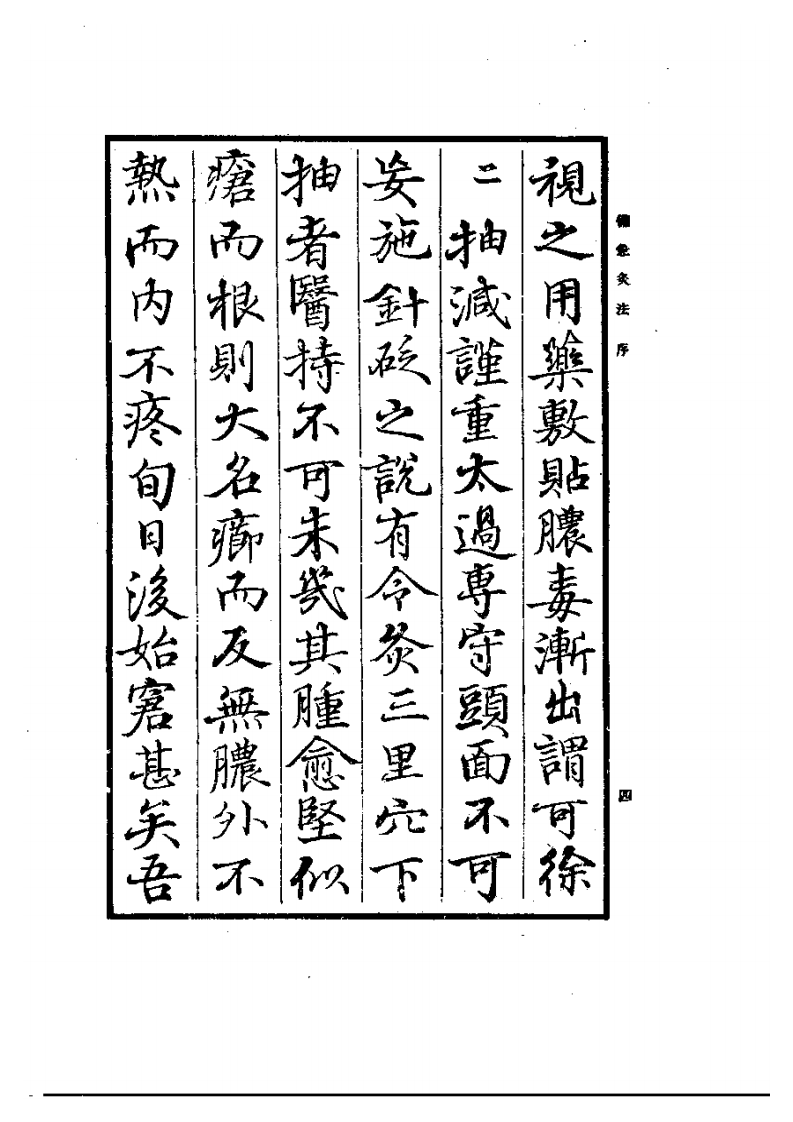 備急灸法 序
四
視之用藥敷貼膿毒漸出謂可徐
二抽減謹重太過專守頭面不可
妄施針砭之說有令灸三里穴下
抽者醫持不可未幾其腫愈堅似
瘡而根則大名癤而反無膿外不
熱而内不疼旬日後始窘甚矣吾